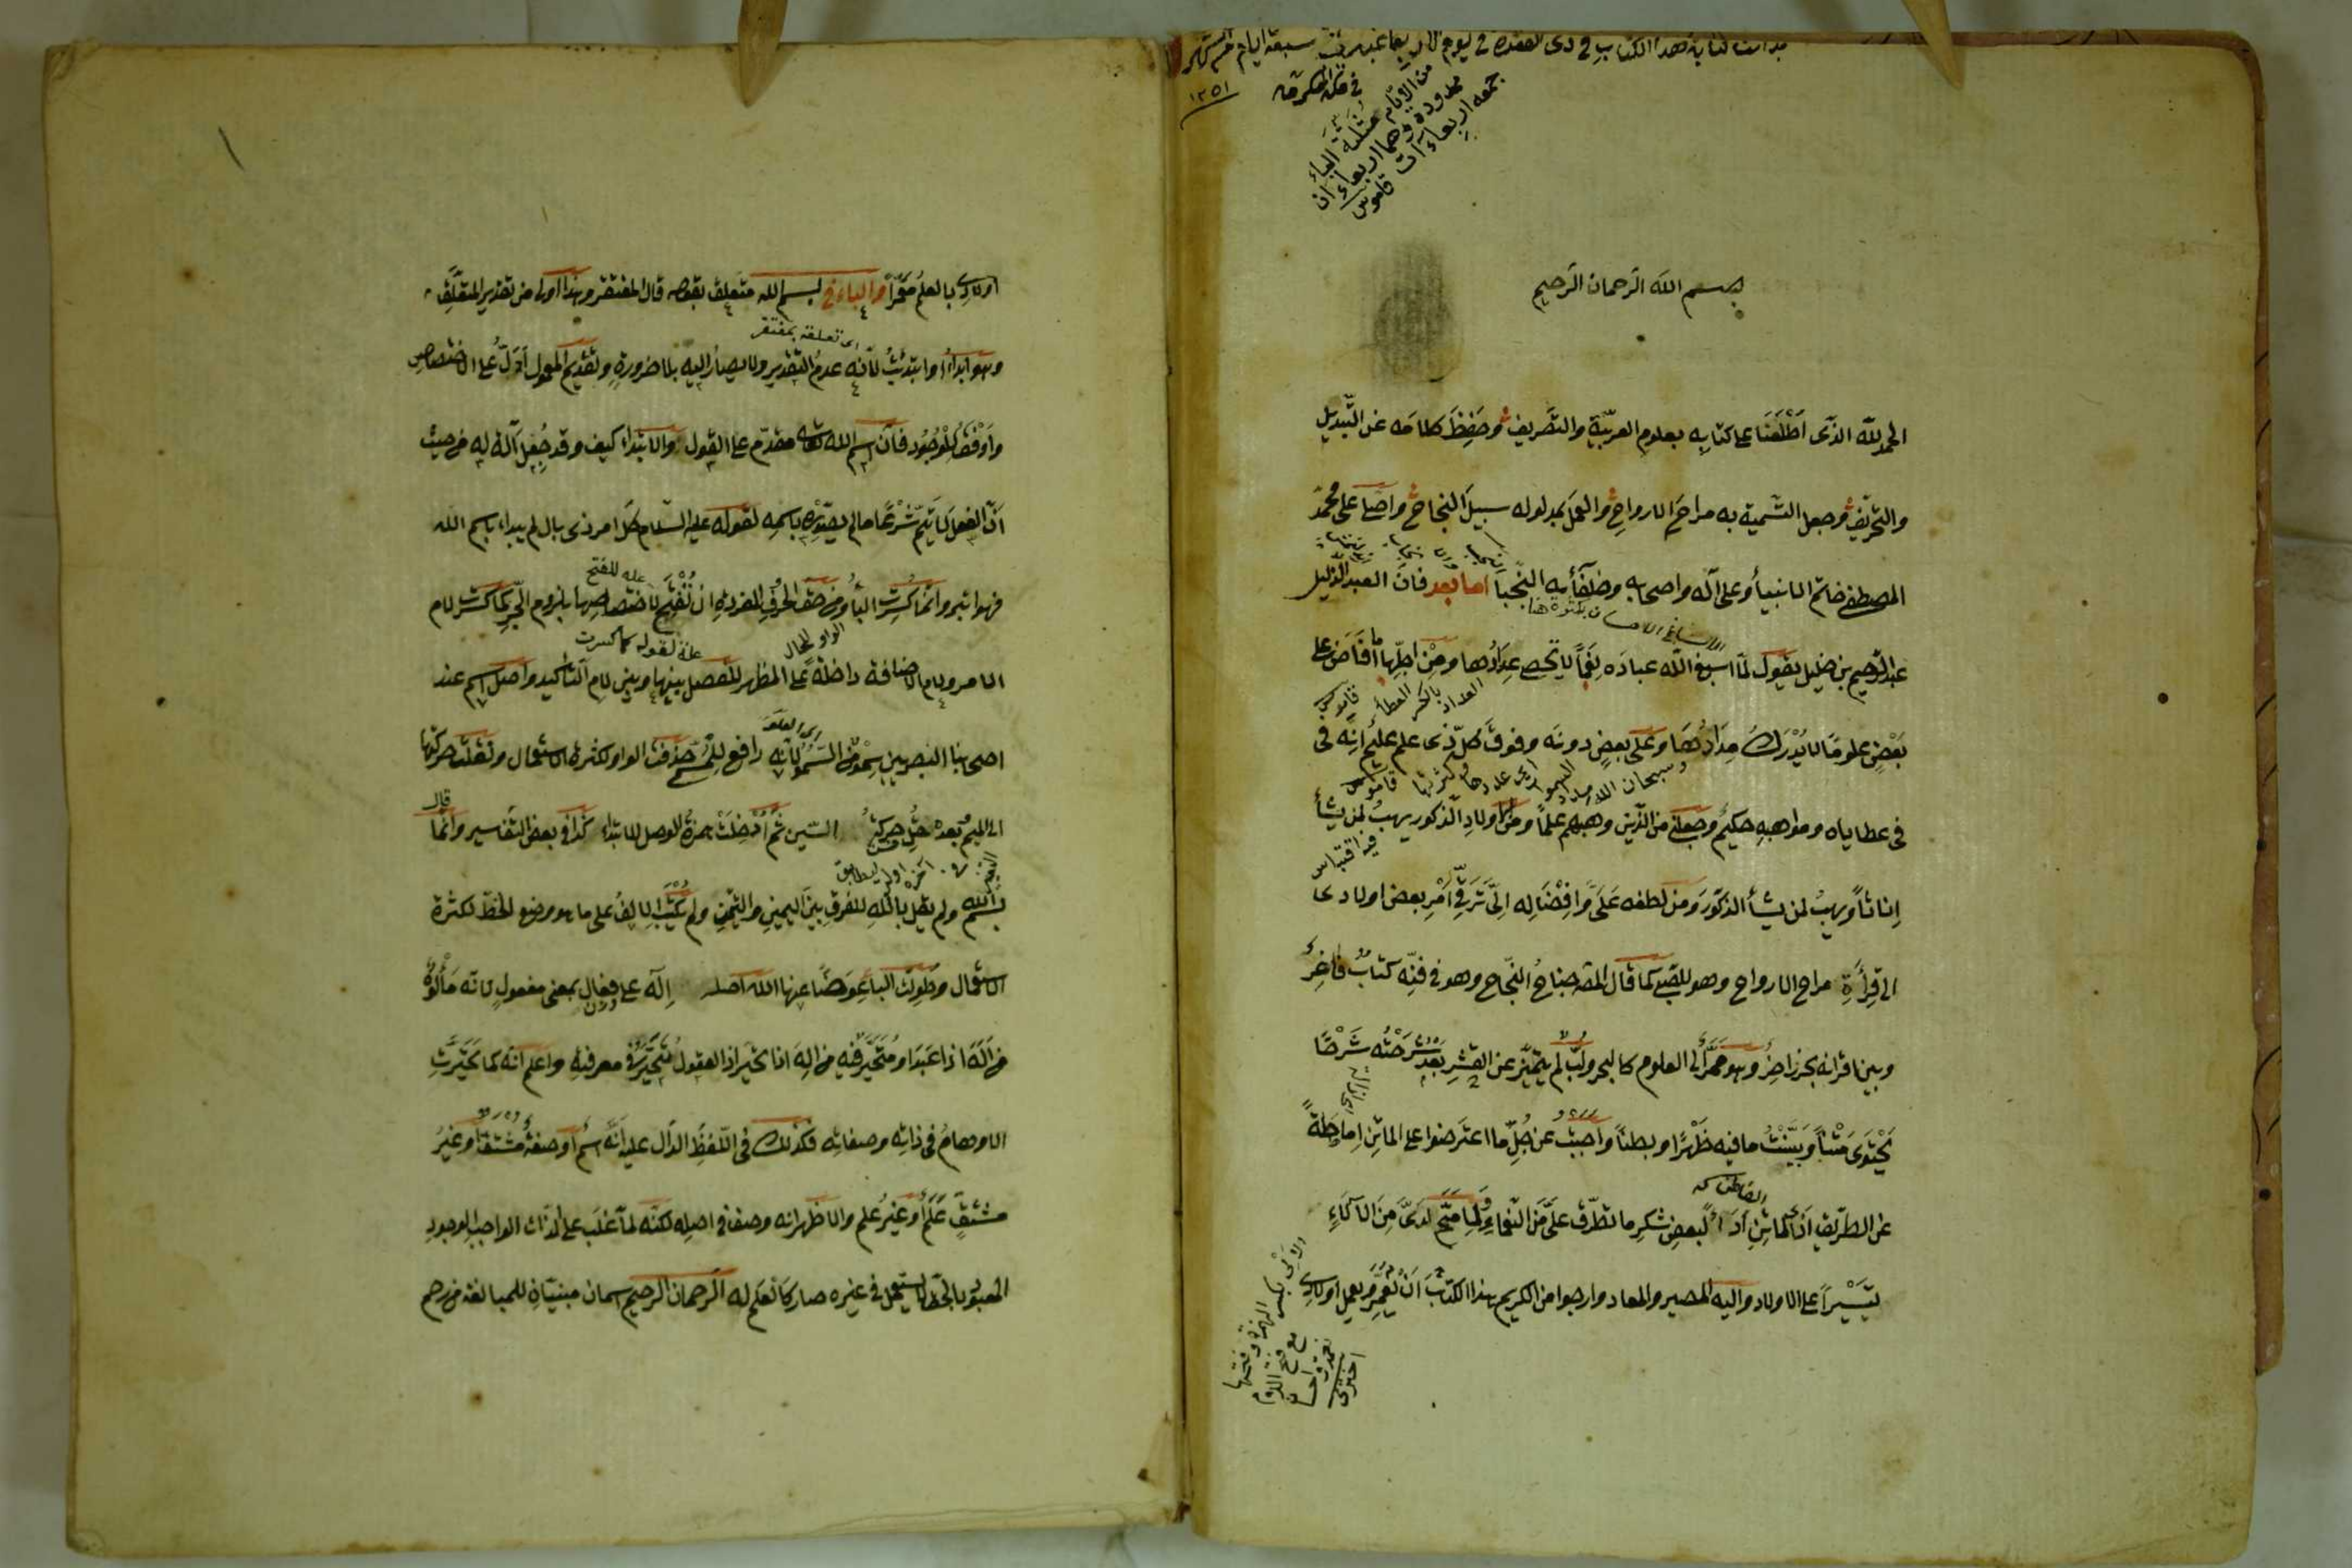 بدأت كتابة هذا الكتاب في ذى القعده في ليوم الاربعا سبعة ايام
في مكة المكرمه ١٢٥١
من الايام مثلثة الباء
ممدودة وهما اربعاءان
جمعه اربعاءات قاموس
بسم الله الرحمان الرحيم
الحمد لله الذى اطلعنا على كتابه بعلوم العربية والتصريف وحفظ كلامه عن التبديل
والتحريف وجعل التسمية به مراح الارواح والعمل بمدلوله سبيل النجاح واصلى على محمد
المصطفى خاتم الانبيأ وعلى آله واصحابه وخلفائه النجبا اما بعد فان العبد الذليل
عبد الرحيم بن خليل يقول لما اسبغ الله عباده نعماً لا يحصى عدادها ومن اجلها ما افاض على
العداد بالكسر العطأ قاموس
بعض علوما لا يدرك مدادها وعلى بعض دونه وفوق كل ذى علم عليم انه فى
وسبحان الله مداد السموات اى عددها وكثرتها قاموس
فى عطاياه ومواهبه حكيم وجعلنى من الذين وهبهم علماً ومن اولاد الذكور يهب لمن يشأ
فيه اقتباس
اناثاً ويهب لمن يشأ الذكور ومن لطفه على وافضاله الى ترقى امر بعض اولادى
الى قرأة مراح الارواح وهو للصبى كما قال المص جناح النجاح وهو في فنه كتاب فاخر
وبين اقرانه بحر زاخر وهو ممر الى العلوم كالبحر ولب لم يتميز عن القشر بعد شرحته شرحا
يحتوى متناً وبينت ما فيه ظهرا وبطناً واجبت عن جل ما اعترضوا على الماتن اماطةً
عن الطريق اذى الماتن اداء لبعض شكر ما تطرف على من النعماء ولما منح لدى من الآلاء
تيسيراً على الاولاد واليه المصير والمعاد وارجوا من الكريم بهذا الكتاب ان يعمر ويعمل اولادى
الالى بكسر الهمزة وفتحها
مع فتح اللام
نعمة واحسان
اختري
اولادى بالعلم معمراً والباء فى بسم الله متعلق بقوله قال المفتقر وهذا اولى من تقدير المتعلق
اى تعلقه بمفتقر
وهو ابدأ او ابتدئت لانه عدم التقدير ولا يصار اليه بلا ضرورة وتقديم المعمول ادل على الاختصاص
واوفق للوجود فان اسم الله تعالى مقدم على القول والابتداء كيف وقد جعل آلة له من حيث
ان الفعل لا يتم شرعًا ما لم يصدر باسمه لقوله عليه السلام كل امر ذى بال لم يبداء باسم الله
علة للفتح
فهو ابتر وانما كسرت البأ ومن حق الحروف المفردة ان تفتح لاختصاصها بلزوم الجر كما كسرت لام
الواو للحال علة لقوله كما كسرت
الامر ولام الاضافة داخلة على المظهر للفصل بينها وبين لام التأكيد واصل اسم عند
اصحابنا البصريين سمو من السمو لانه رافع للمسمى حذفت الواو لكثرة الاستعمال ونقلت حركتها
الى الميم بعد حركة السين ثم ادخلت همزة الوصل للابتداء كذا في بعض التفاسير وانما قال
بسم الله ولم يقل بالله للفرق بين اليمين والتيمن ولم يكتب الالف على ما هو موضع الخط لكثرة
الاستعمال وطولت البأ عوضًا عنها الله اصله إله على فعال بمعنى مفعول لانه مألوه
من اله اذا عبد او متحير فيه من اله اذا تحير اذ العقول متحيرة في معرفته واعلم انه كما تحيرت
الاوهام فى ذاته وصفاته فكذلك فى اللفظ الدال عليه انه اسم او صفة مشتق او غير
مشتق علم او غير علم والاظهر انه وصف في اصله لكنه لما غلب على الذات الواجب الوجود
المعبود بالحق لا يستعمل فى غيره صار كالعلم له الرحمان الرحيم اسمان مبنيان للمبالغة من رحم